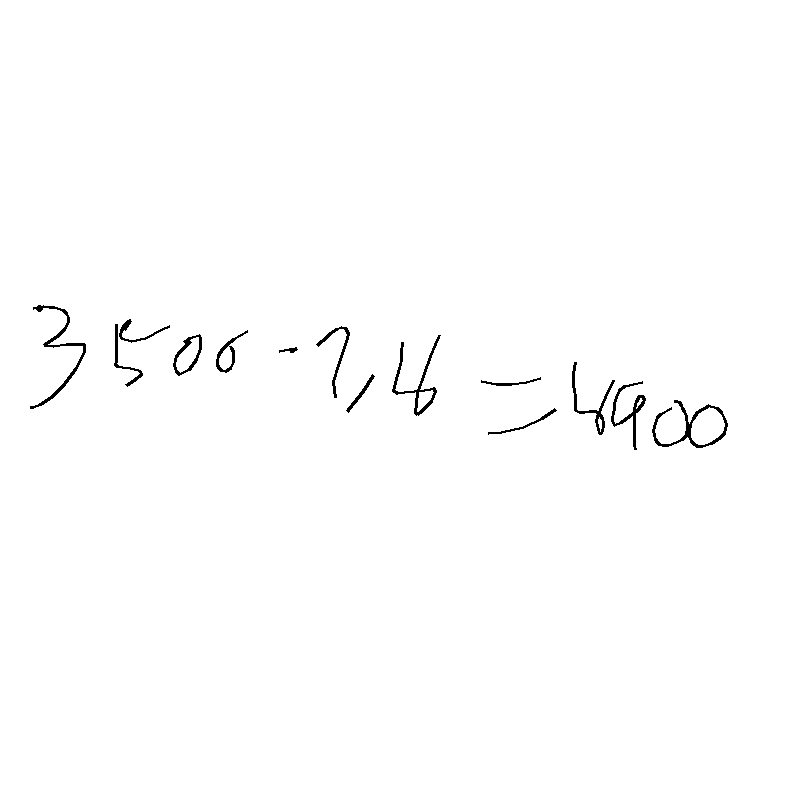 3500 · 1,4 = 4900